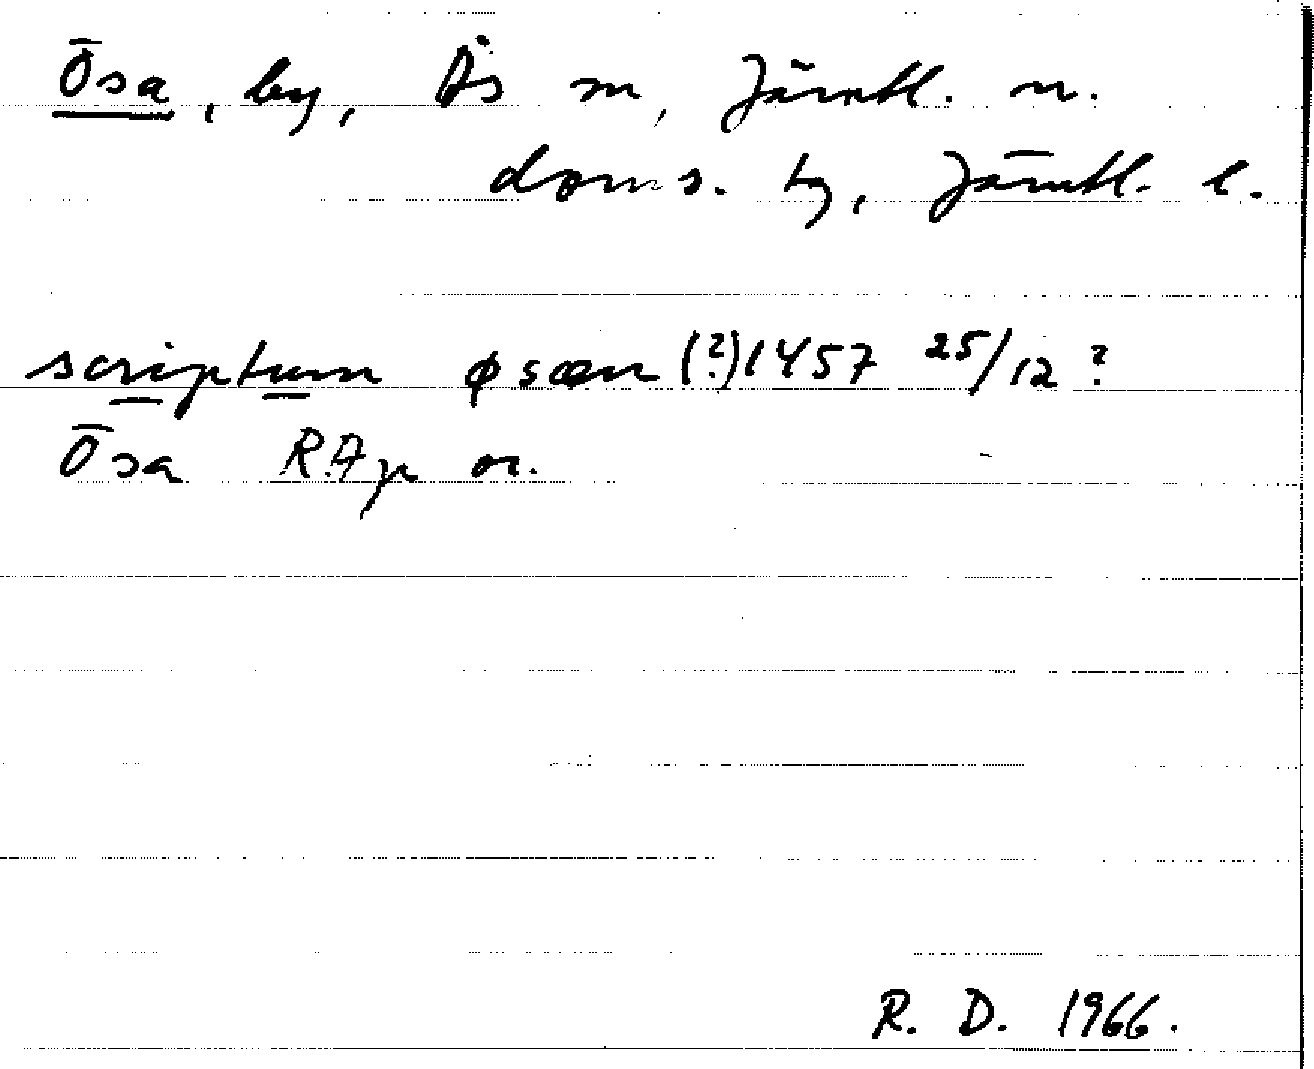 Ösa, by, Ås sn, Jämtl. n.
doms. by, Jämtl. l.
scriptum øsæn (?) 1457 25/12 ?
Ösa RAp or.
R. D. 1966.